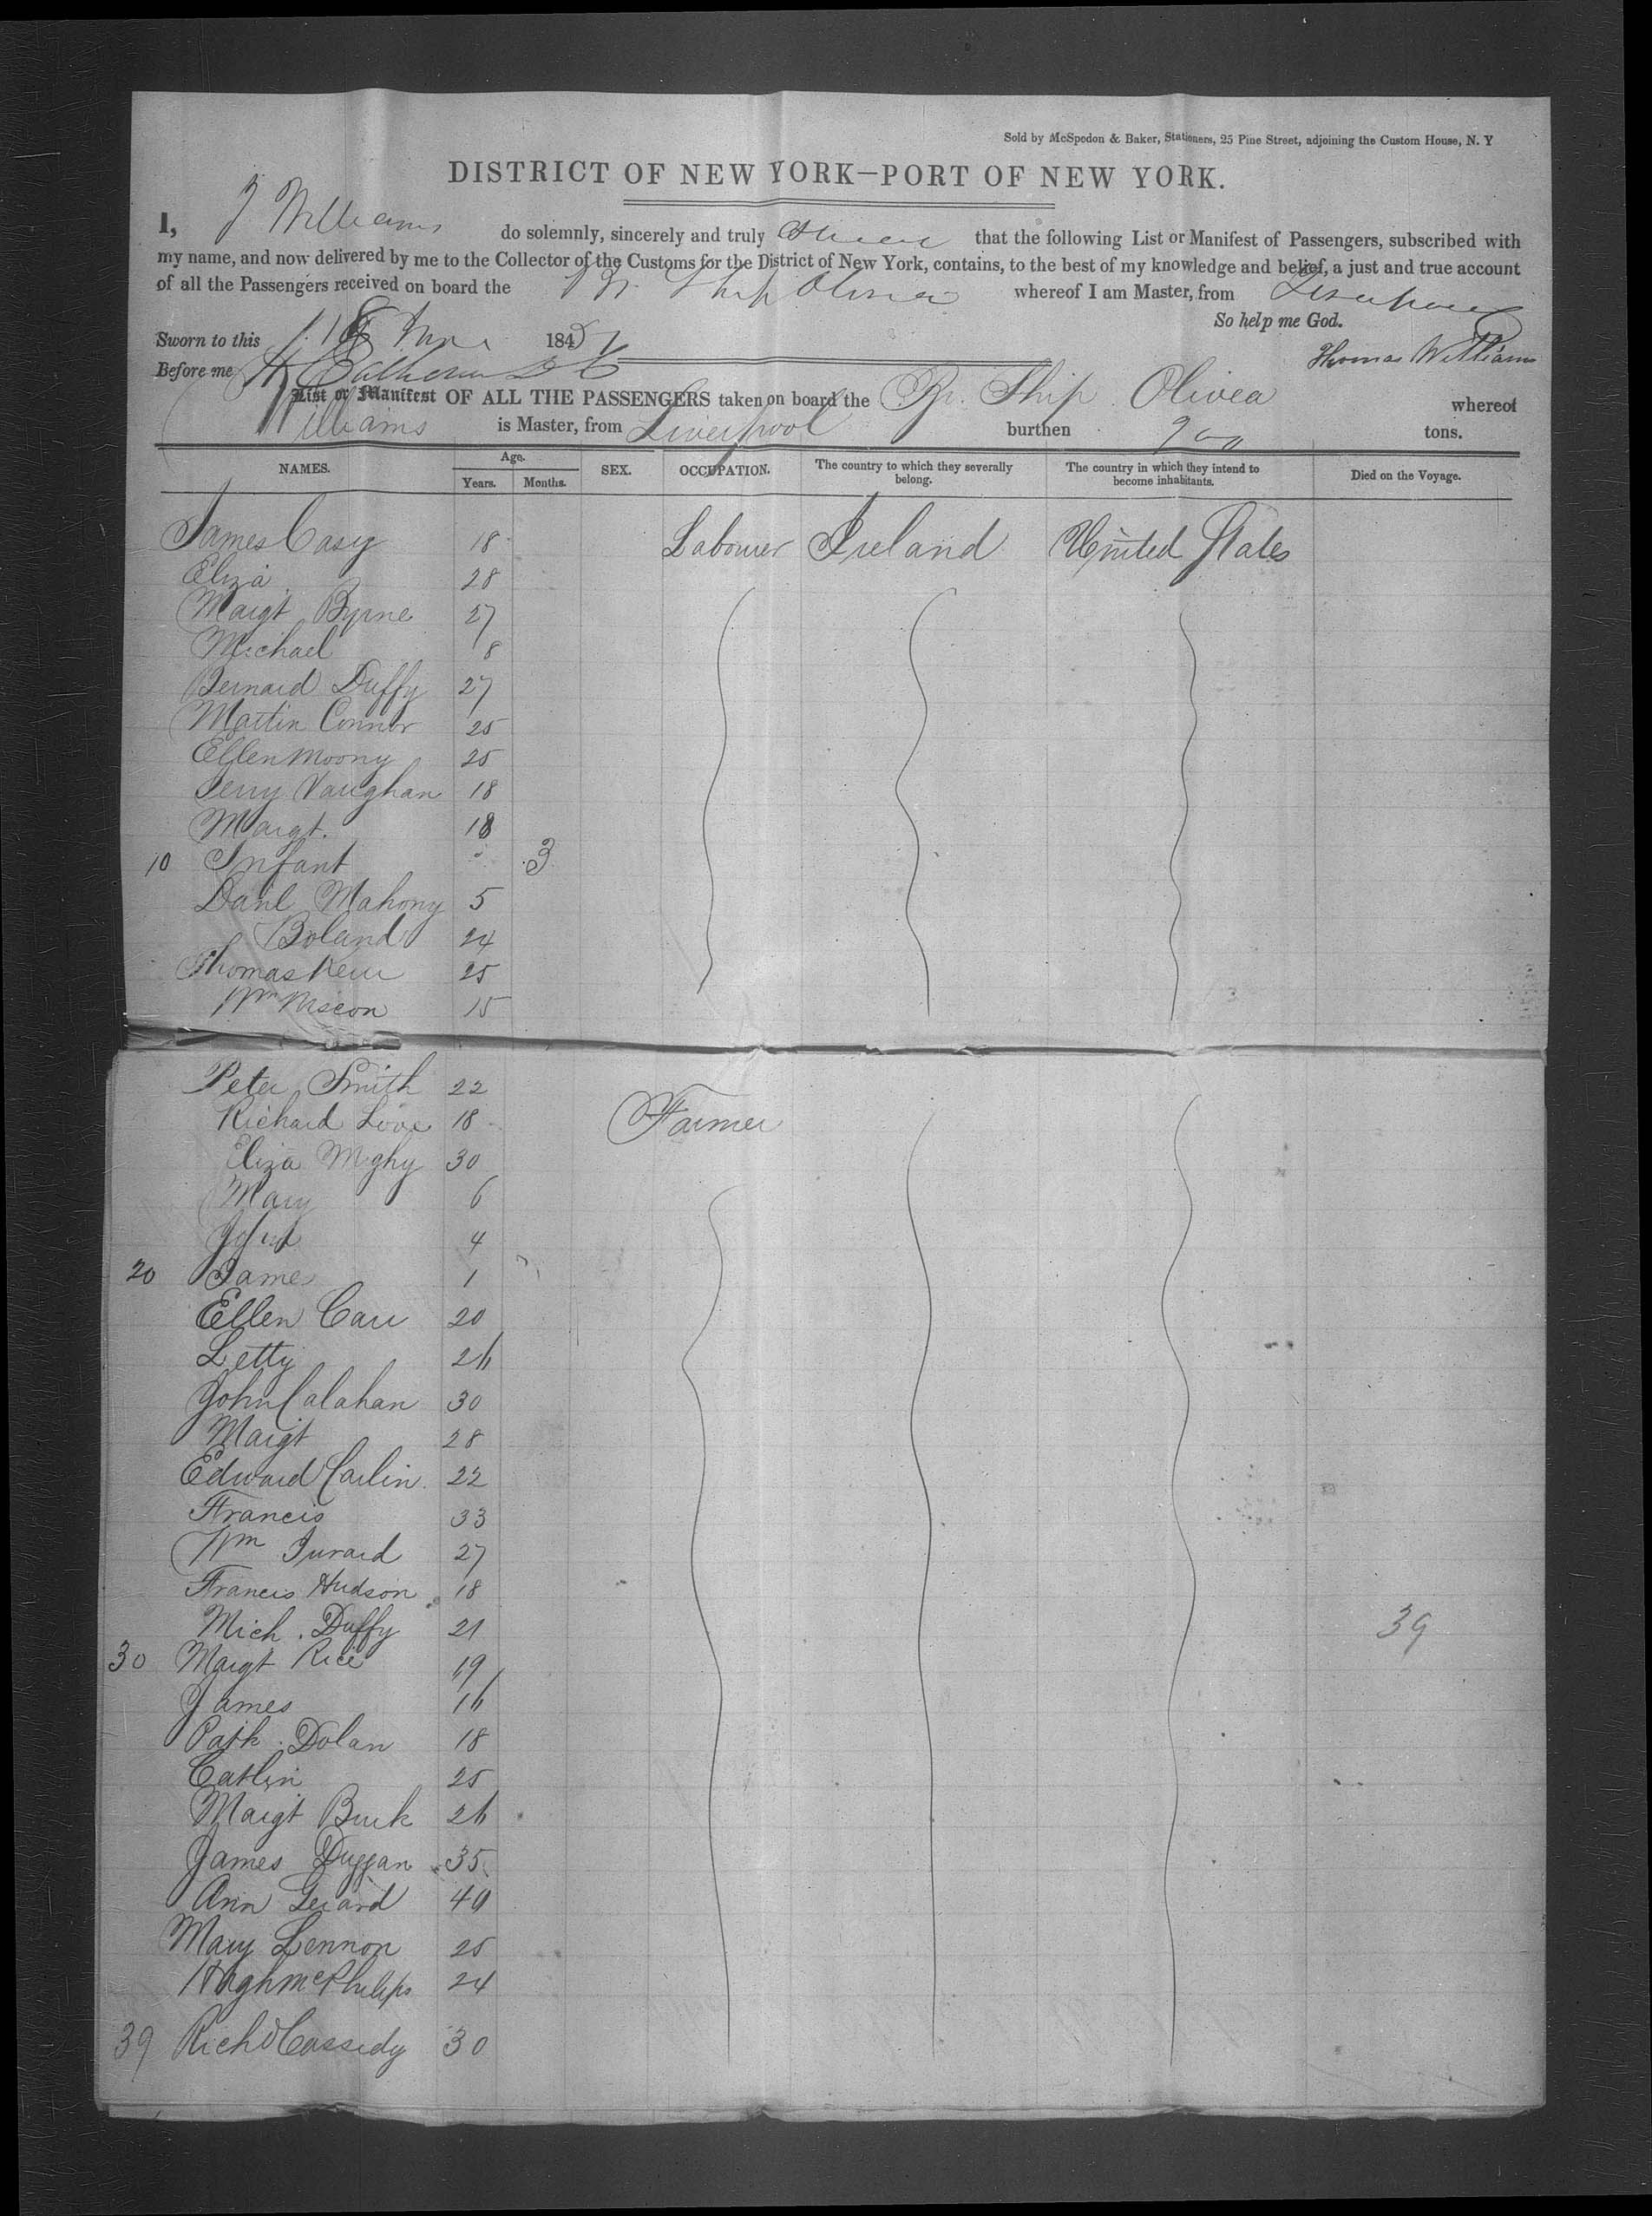 Sold by McSpedon & Baker, Stationers, 25 Pine Street, adjoining the Custom House, N. Y
DISTRICT OF NEW YORK—PORT OF NEW YORK.
I, J Williams do solemnly, sincerely and truly that the following List or Manifest of Passengers, subscribed with
my name, and now delivered by me to the Collector of the Customs for the District of New York, contains, to the best of my knowledge and belief, a just and true account
of all the Passengers received on board the Br. Ship Olivea whereof I am Master, from Liverpool
So help me God.
Sworn to this 18 June 184
Thomas Williams
Before me
List or Manifest OF ALL THE PASSENGERS taken on board the Br. Ship Olivea whereof
Williams is Master, from Liverpool burthen 900 tons.
NAMES. Age. Years. Months. SEX. OCCUPATION. The country to which they severally belong. The country in which they intend to become inhabitants. Died on the Voyage.
James Casy 18 Labourer Ireland United States
Eliza 28
Margt Byrne 27
Michael 8
Bernard Duffy 27
Martin Connor 25
Ellen Moony 25
Jerry Vaughan 18
Margt. 18
10 Infant 3
Danl Mahony 5
Boland 24
Thomas Kerr 25
Wm 15
Peter Smith 22
Richard Love 18 Farmer
Eliza 30
Mary 6
John 4
20 Jame 1
Ellen Carr 20
Letty 26
John Calahan 30
Margt 28
Edward Carlin 22
Francis 33
Wm 27
Francis Hudson 18
Mich. Duffy 21 39
30 Margt Rice 19
James 16
Patk. Dolan 18
Cathn 25
Margt Burk 26
James Duggan 35
Ann Gerard 40
Mary Lennon 25
Hugh McPhilips 24
39 Richd Cassidy 30